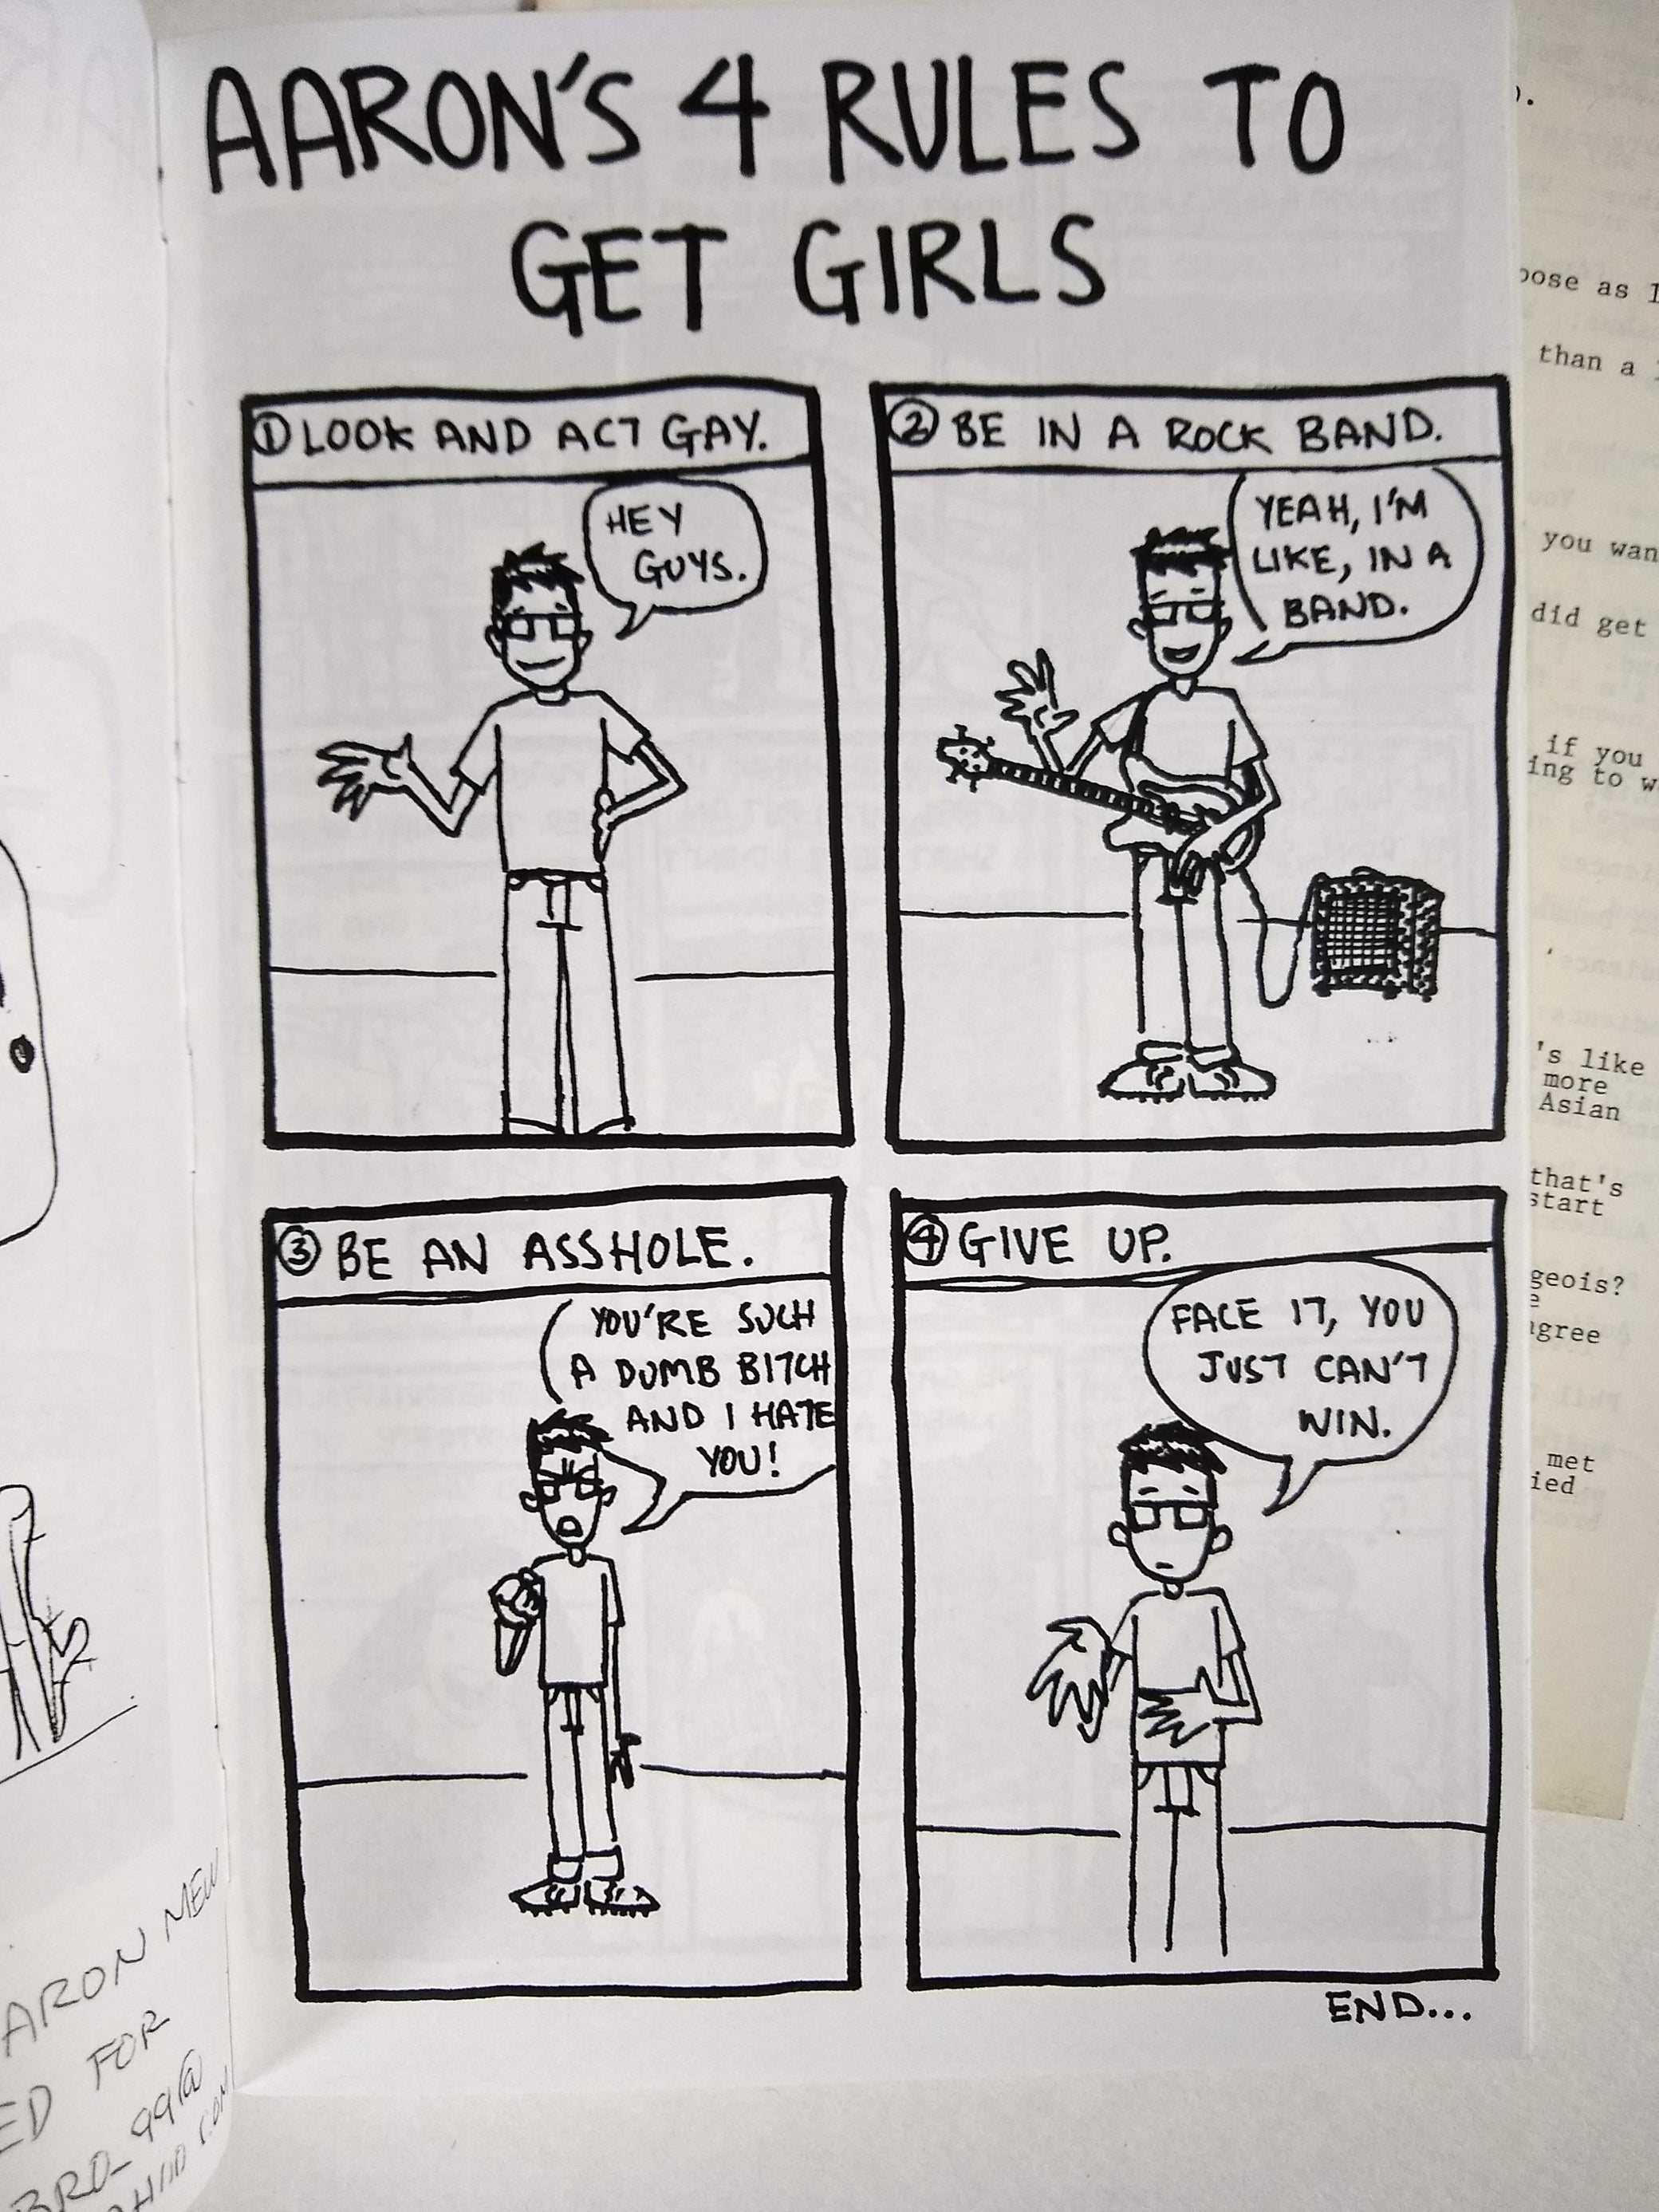 AARON'S 4 RULES TO
GET GIRLS
① LOOK AND ACT GAY.
HEY
GUYS.
② BE IN A ROCK BAND.
YEAH, I'M
LIKE, IN A
BAND.
③ BE AN ASSHOLE.
YOU'RE SUCH
A DUMB BITCH
AND I HATE
YOU!
④ GIVE UP.
FACE IT, YOU
JUST CAN'T
WIN.
END...
ARON MEW
ED FOR
BRO_99@
.COM
than a
you wan
did get
if you
ing to w
's like
more
Asian
that's
start
geois?
gree
met
ied